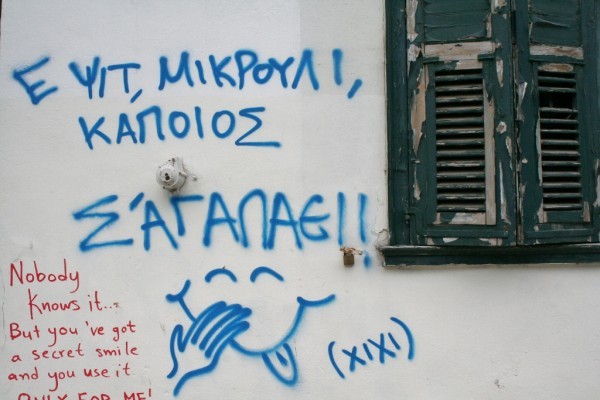 Ε ΨΙΤ, ΜΙΚΡΟΥΛΙ,
ΚΑΠΟΙΟΣ
Σ'ΑΓΑΠΑΕ!!
(ΧΙΧΙ)
Nobody
Knows it...
But you've got
a secret smile
and you use it
ONLY FOR ME!